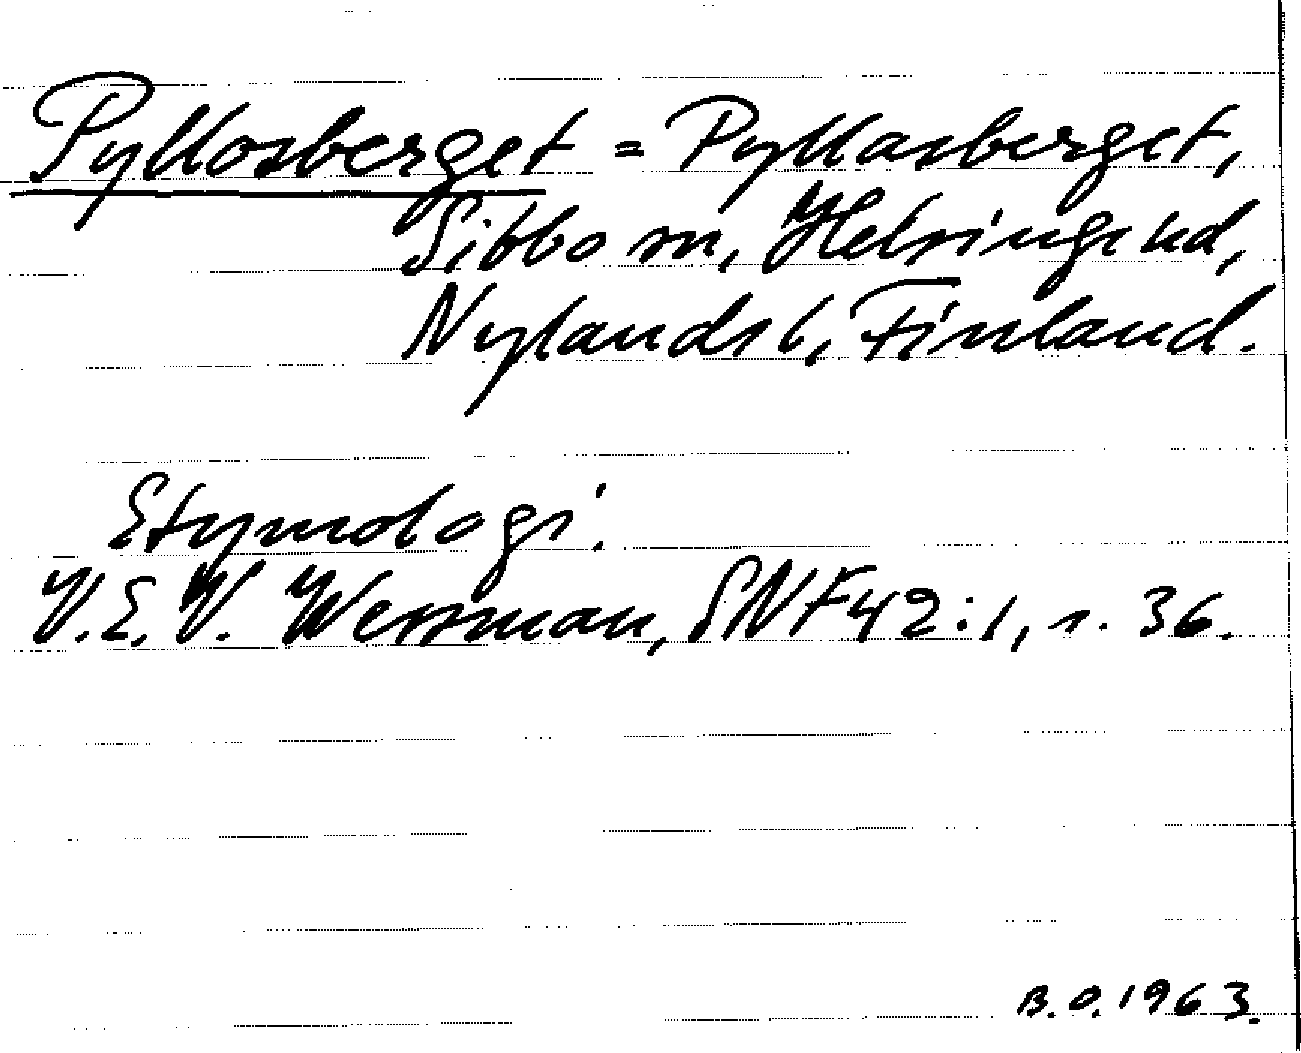 Pyllosberget = Pyllasberget,
Sibbo sn, Helsinge hd,
Nylands l, Finland.
Etymologi.
V.E.V. Wessman, SNF 42:1, s. 36.
B.O. 1963.